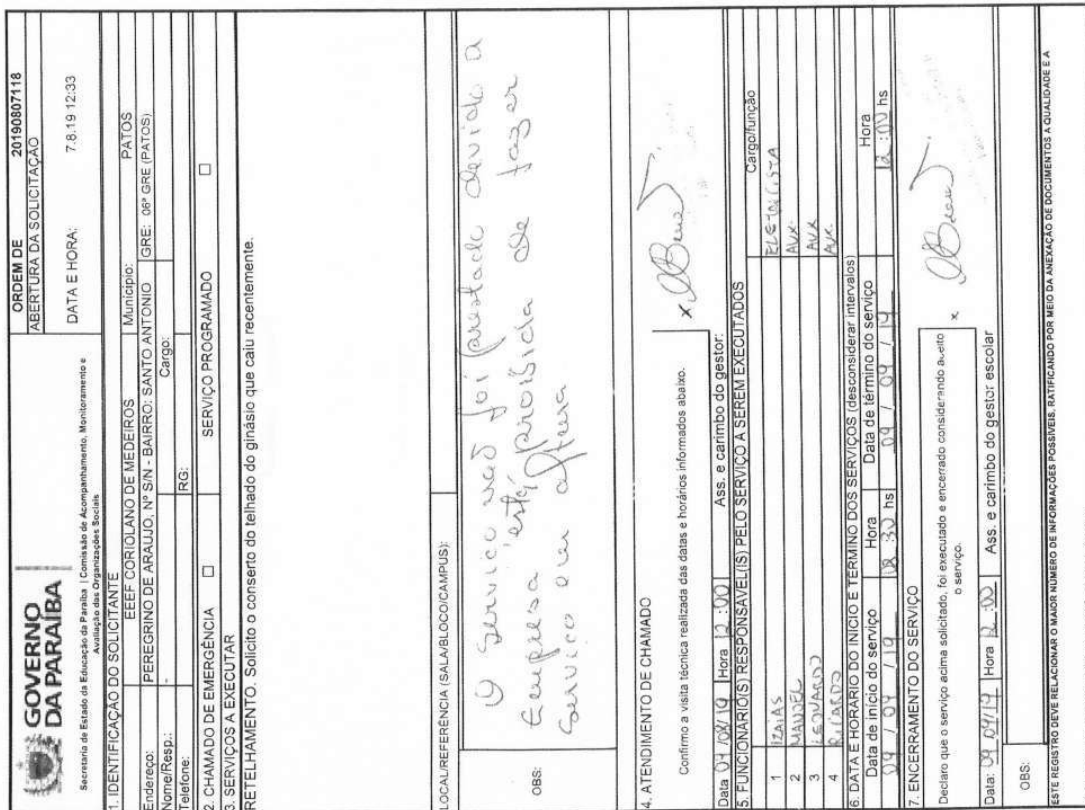 GOVERNO
DA PARAÍBA
Secretaria de Estado da Educação da Paraíba | Comissão de Acompanhamento, Monitoramento e
Avaliação das Organizações Sociais
ORDEM DE 20190807118
ABERTURA DA SOLICITAÇÃO
DATA E HORA: 7.8.19 12:33
1. IDENTIFICAÇÃO DO SOLICITANTE
EEEF CORIOLANO DE MEDEIROS Município: PATOS
Endereço: PEREGRINO DE ARAUJO, Nº S/N - BAIRRO: SANTO ANTONIO GRE: 06ª GRE (PATOS)
Nome/Resp.: - Cargo:
Telefone: RG:
2. CHAMADO DE EMERGÊNCIA ☐ SERVIÇO PROGRAMADO ☐
3. SERVIÇOS A EXECUTAR
RETELHAMENTO. Solicito o conserto do telhado do ginásio que caiu recentemente.
LOCAL/REFERÊNCIA (SALA/BLOCO/CAMPUS):
OBS:
O Serviço não foi prestado devido a
Empresa está proibida de fazer
Serviço em altura
4. ATENDIMENTO DE CHAMADO
Confirmo a visita técnica realizada das datas e horários informados abaixo.
x
Data 09 Hora 12:00 Ass. e carimbo do gestor:
5. FUNCIONÁRIO(S) RESPONSÁVEL(IS) PELO SERVIÇO A SEREM EXECUTADOS Cargo/função
1 IZAIAS ELETRICISTA
2 MANOEL AUX.
3 AUX
4 RICARDO AUX.
6. DATA E HORÁRIO DO INÍCIO E TÉRMINO DOS SERVIÇOS (desconsiderar intervalos)
Data de início do serviço Hora Data de término do serviço Hora
09 / 09 / 19 08:30 hs 09 / 09 / 19 12:00 hs
7. ENCERRAMENTO DO SERVIÇO
Declaro que o serviço acima solicitado, foi executado e encerrado considerando aceito
o serviço.
x
Data: 09/09/19 Hora 12:00 Ass. e carimbo do gestor escolar
OBS:
ESTE REGISTRO DEVE RELACIONAR O MAIOR NÚMERO DE INFORMAÇÕES POSSÍVEIS, RATIFICANDO POR MEIO DA ANEXAÇÃO DE DOCUMENTOS A QUALIDADE E A